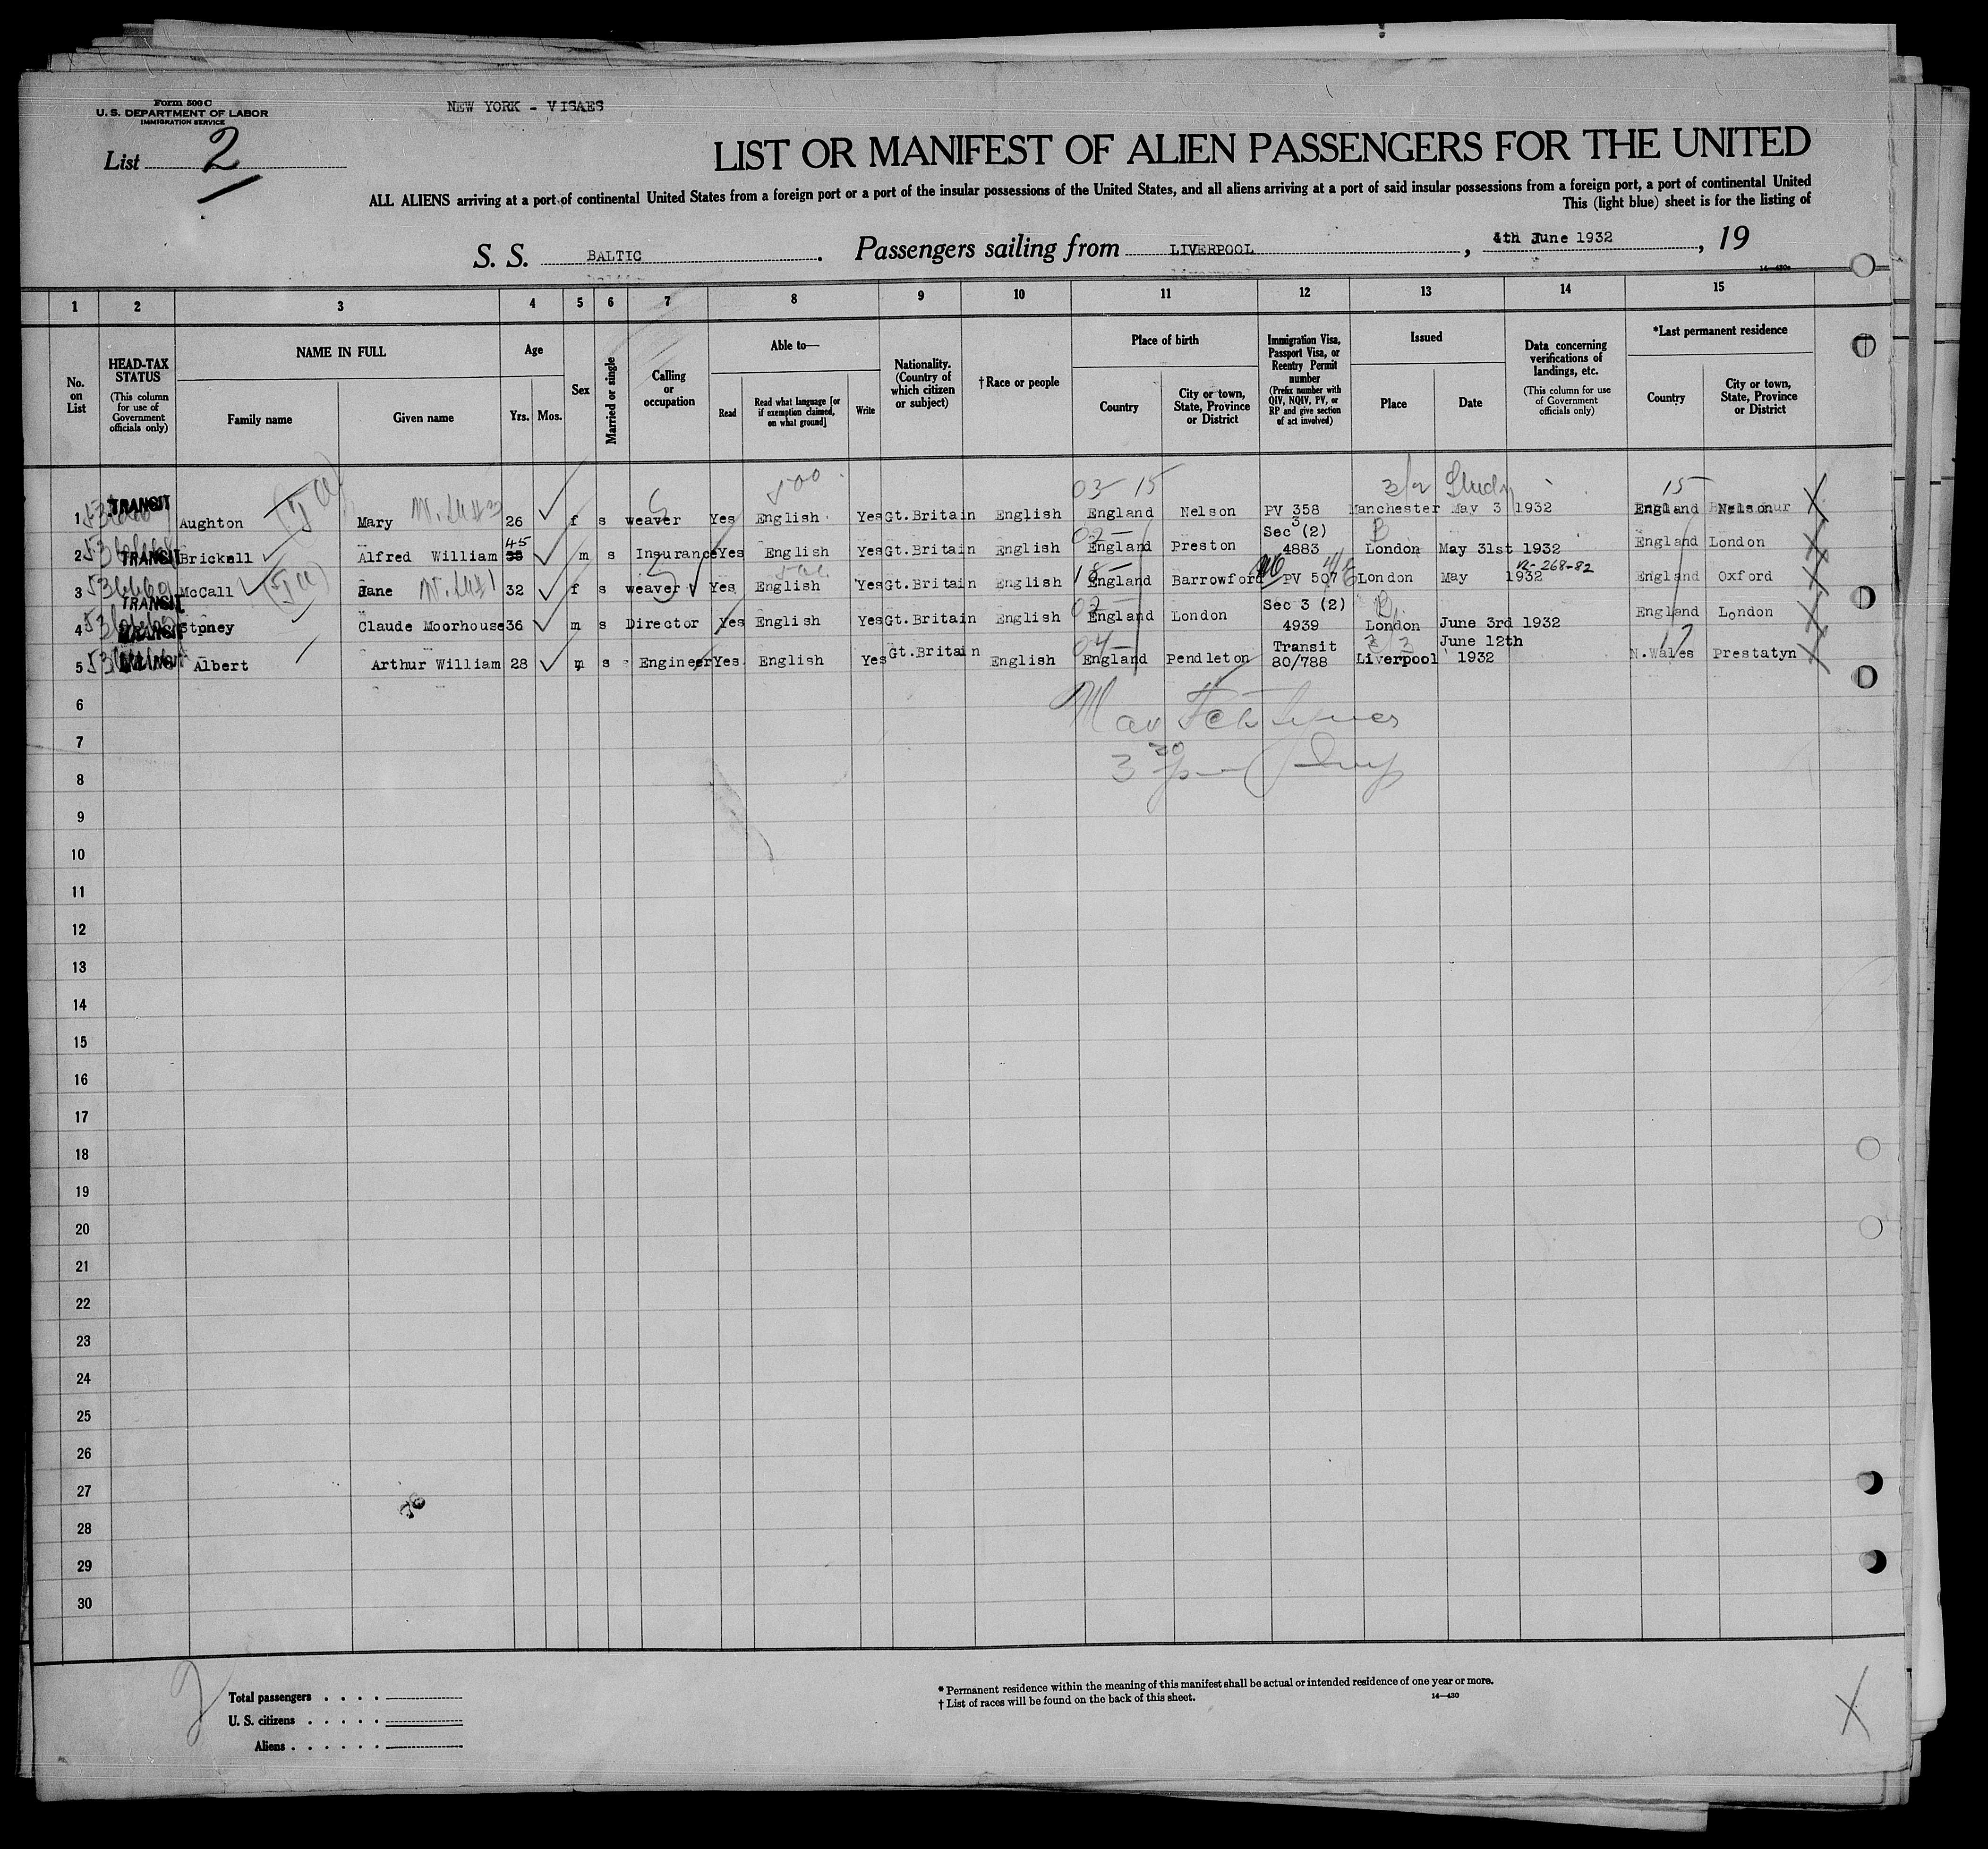 Form 500 C
U. S. DEPARTMENT OF LABOR
IMMIGRATION SERVICE
NEW YORK - VISAES
List 2
LIST OR MANIFEST OF ALIEN PASSENGERS FOR THE UNITED
ALL ALIENS arriving at a port of continental United States from a foreign port or a port of the insular possessions of the United States, and all aliens arriving at a port of said insular possessions from a foreign port, a port of continental United
This (light blue) sheet is for the listing of
S. S. BALTIC. Passengers sailing from LIVERPOOL, 4th June 1932, 19
14—430a
1 2 3 4 5 6 7 8 9 10 11 12 13 14 15
No. on List
HEAD-TAX STATUS
(This column for use of Government officials only)
NAME IN FULL
Family name
Given name
Age
Yrs. Mos.
Sex
Married or single
Calling or occupation
Able to—
Read
Read what language [or if exemption claimed, on what ground]
Write
Nationality. (Country of which citizen or subject)
† Race or people
Place of birth
Country
City or town, State, Province or District
Immigration Visa, Passport Visa, or Reentry Permit number
(Prefix number with QIV, NQIV, PV, or RP and give section of act involved)
Issued
Place
Date
Data concerning verifications of landings, etc.
(This column for use of Government officials only)
*Last permanent residence
Country
City or town, State, Province or District
03 15 3/2 15
1 TRANSIT Aughton Mary 26 f s weaver Yes English Yes Gt.Britain English England Nelson PV 358 Manchester May 3 1932 England Nelson
2 TRANSIT Brickell Alfred William 45 m s Insurance Yes English Yes Gt.Britain English England Preston Sec 3 (2) 4883 London May 31st 1932 England London
3 McCall Jane 32 f s weaver Yes English Yes Gt.Britain English England Barrowford PV 507 London May 1932 England Oxford
4 TRANSIT Stoney Claude Moorhouse 36 m s Director Yes English Yes Gt.Britain English England London Sec 3 (2) 4939 London June 3rd 1932 England London
5 Albert Arthur William 28 m s Engineer Yes English Yes Gt.Britain English England Pendleton Transit 80/788 Liverpool June 12th 1932 N.Wales Prestatyn
6
7
8
9
10
11
12
13
14
15
16
17
18
19
20
21
22
23
24
25
26
27
28
29
30
Total passengers . . . .
U. S. citizens . . . . .
Aliens . . . . . .
* Permanent residence within the meaning of this manifest shall be actual or intended residence of one year or more.
† List of races will be found on the back of this sheet.
14—430